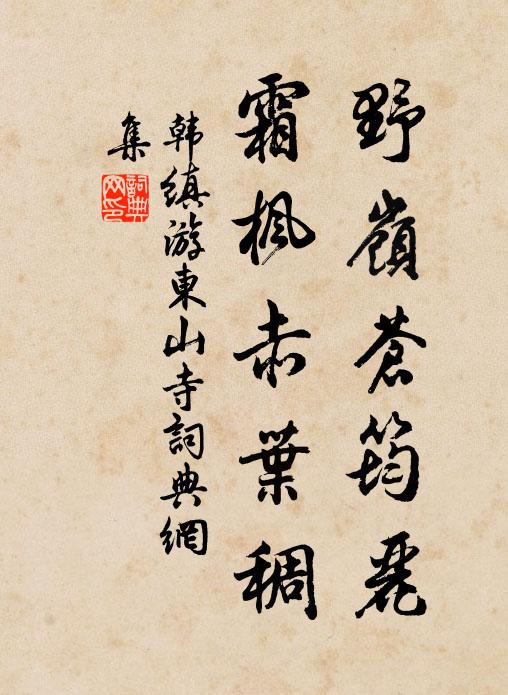 野嶺蒼筠麗
霜楓赤葉稠
韩縝游東山寺詞典網
集
詞典網印